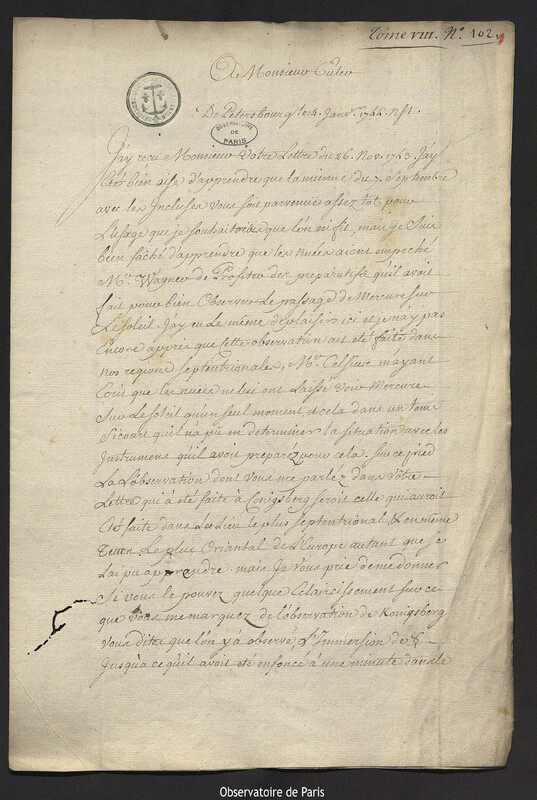 Tome VIII. N° 102
A Monsieur Euler
De Petersbourg le 4. Janv. 1744. n st.
OBSERVATOIRE DE PARIS
J'ay reçu Monsieur Votre Lettre du 26. Nov. 1743. J'ay
été bien aise d'apprendre que la mienne du 7. Septembre
avec les Incluses vous soit parvenue assez tot pour
L'usage que je souhaitois que l'on en fit, mais je suis
bien faché d'apprendre que les nuées aient empeché
Mr. Wagner de Profiter des preparatifs qu'il avoit
fait pour bien Observer Le passage de Mercure sur
Le Soleil. J'ay eu Le même deplaisir ici et je n'ay pas
Encore appris que cette observation ait été faite dans
nos regions septentrionales, Mr. Celsius m'ayant
Ecrit que les nuées ne lui ont Laissé voir Mercure
Sur Le Soleil qu'un seul moment et cela dans un tems
si court qu'il n'a pu en determiner la situation avec les
Instrumens qu'il avoit preparez pour cela. sur ce pied
La L'observation dont vous me parlez dans Vôtre
Lettre qui a été faite à Conigsberg seroit celle qui auroit
Eté faite dans Le Lieu le plus septentrional & en même
Tems Le plus Oriantal de L'Europe autant que je
L'ai pu apprendre. mais Je Vous prie de me donner
Si vous le pouvez quelque Eclaircissement sur ce
que vous me marquez de l'observation de Konigsberg
Vous dites que l'on y a observé, L'Immersion de ☿
Jusqu'à ce qu'il avoit été enfoncé à une minute dans le
Observatoire de Paris